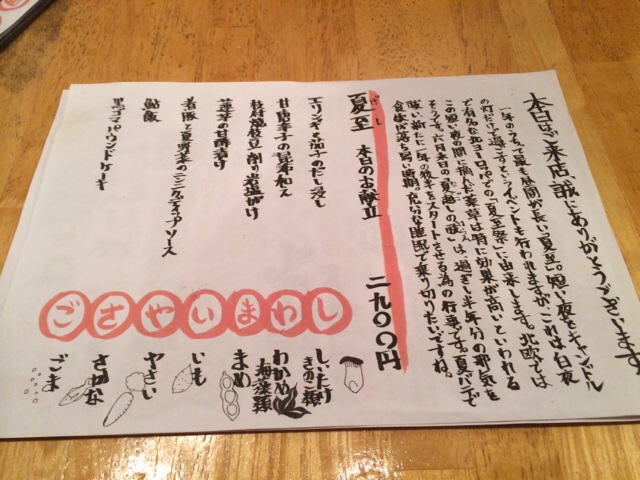 本日はご来店、誠にありがとうございます
一年のうちで最も昼間が長い「夏至」。短い夜をキャンドル
の灯だけで過ごすというイベントも行われますが、これは白夜
で有名な北ヨーロッパでの「夏至祭」に由来します。北欧では
この短い夜の間に摘んだ薬草は特に効果が高いといわれる
そうです。六月末日の「夏越しの祓」は、過ぎし半年分の邪気を
祓い新たに一年の後半をスタートさせる為の行事です。夏バテで
食欲が落ち易い時期。充分な睡眠で乗り切りたいですね。
夏至 げし 本日のお献立 二九〇〇円
エリンギと茄子のだし浸し
甘唐辛子の昆布和え
枝付焼枝豆 削り岩塩がけ
蓮芋の甘酢漬け
煮豚と夏野菜のニンニクチップソース
鮎飯
黒ゴマパウンドケーキ
ごさやいまわし
しいたけ
きのこ類
わかめ
海藻類
まめ
いも
やさい
さかな
ごま